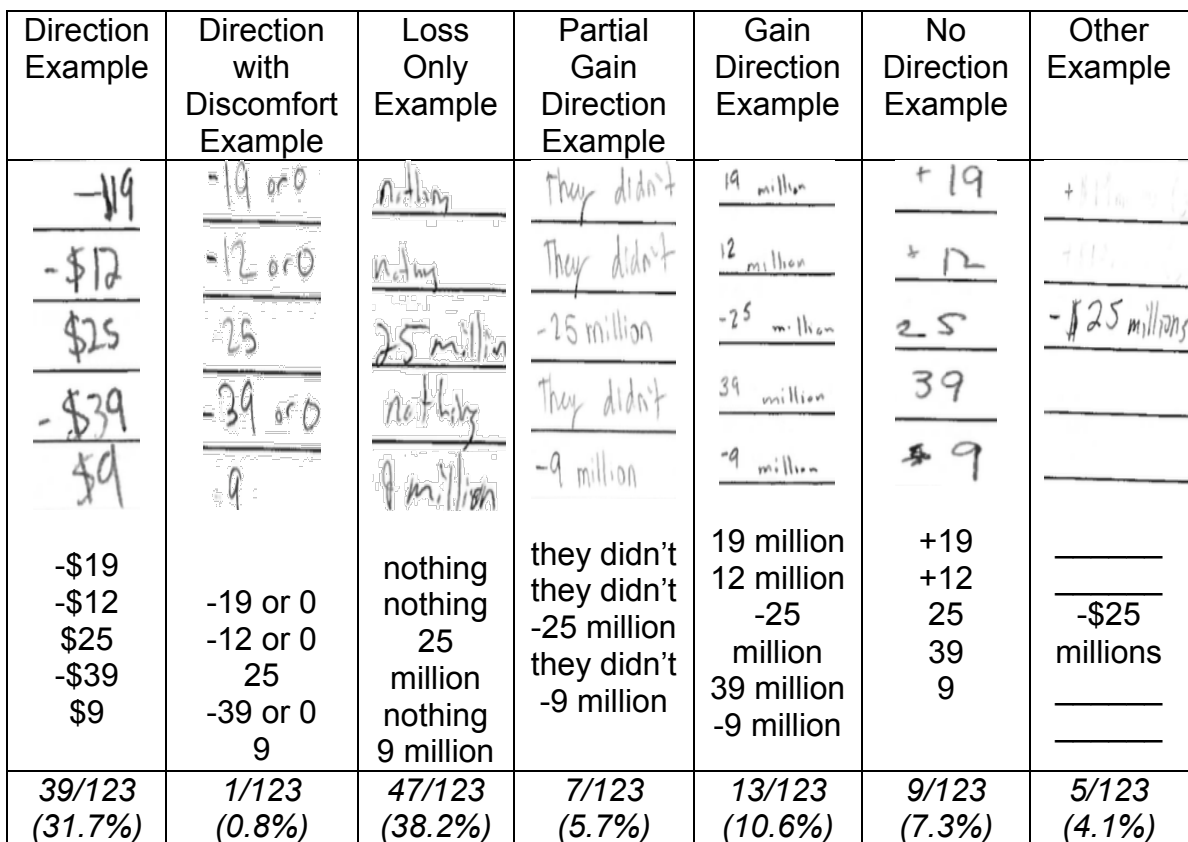 Direction
Example
Direction
with
Discomfort
Example
Loss
Only
Example
Partial
Gain
Direction
Example
Gain
Direction
Example
No
Direction
Example
Other
Example
-$19
-$12
$25
-$39
$9
-19 or 0
-12 or 0
25
-39 or 0
9
nothing
25 million
nothing
million
They didn't
They didn't
-25 million
They didn't
-9 million
19 million
12 million
-25 million
39 million
-9 million
+ 19
+ 12
25
39
9
-$25 millions
-$19
-$12
$25
-$39
$9
-19 or 0
-12 or 0
25
-39 or 0
9
nothing
nothing
25
million
nothing
9 million
they didn't
they didn't
-25 million
they didn't
-9 million
19 million
12 million
-25
million
39 million
-9 million
+19
+12
25
39
9
-$25
millions
39/123
(31.7%)
1/123
(0.8%)
47/123
(38.2%)
7/123
(5.7%)
13/123
(10.6%)
9/123
(7.3%)
5/123
(4.1%)